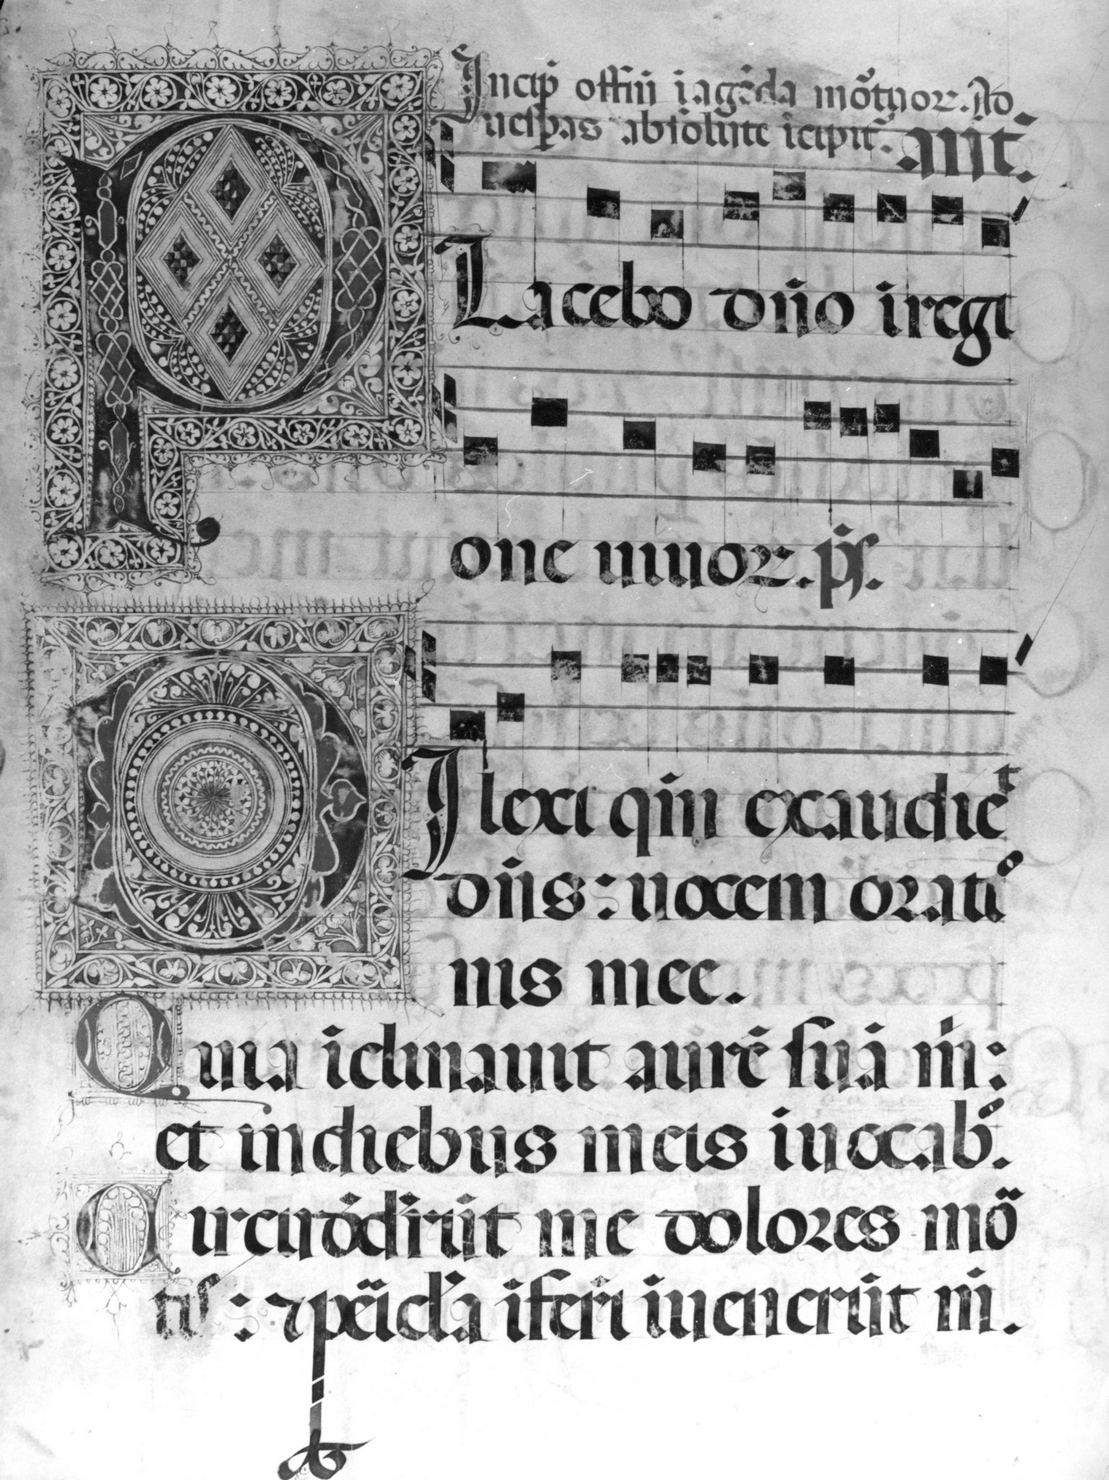 Incip̄ offiū ī agēda mōtuor̄. Ad
uesp̄as absolute icipit̄. Ant̄.
PLacebo dño ī regi
one uiuor̄. p̄s.
DIlexi qm̄ exaudiet
dñs: uocem oratio
nis mee.
Quia iclinauit aurē suā m̄:
et in diebus meis inuocabo.
Circūdēdrūt me dolores mō
tis: ⁊ peīcl'a iferi inuenerūt m̄.